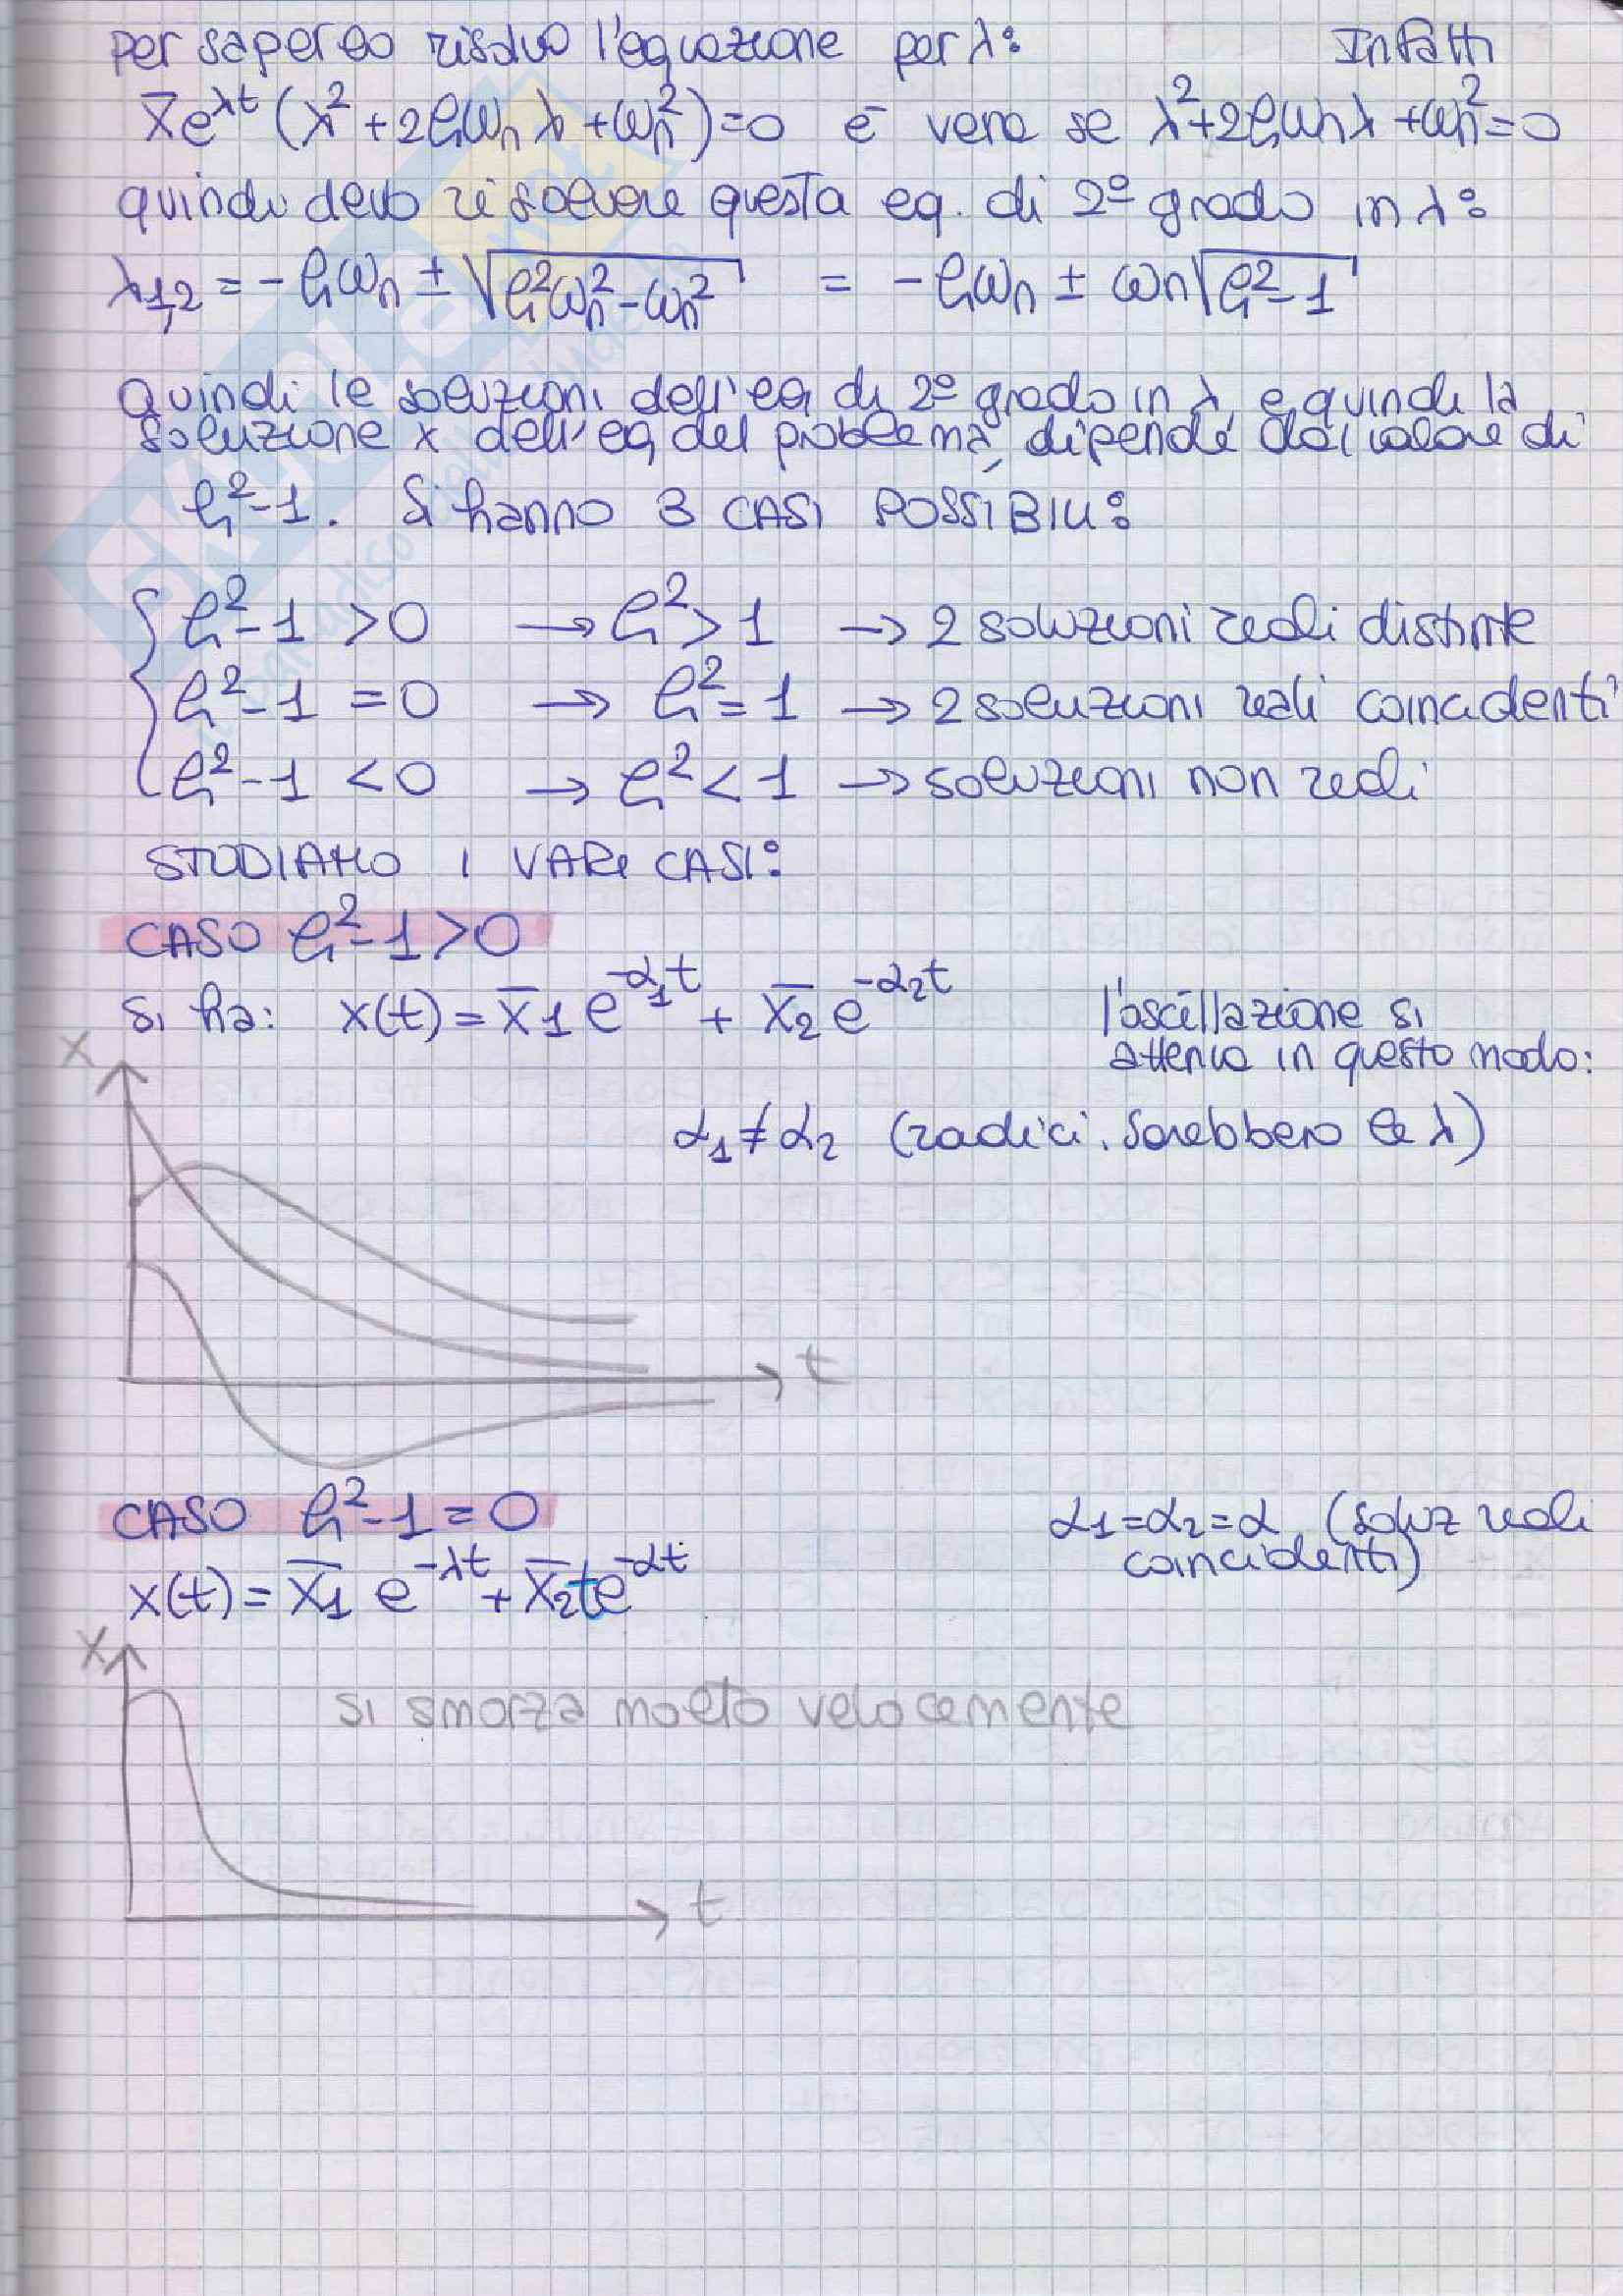 per saperlo risolvo l'equazione per λ: Infatti
X̄e^λt (λ²+2ξωnλ+ωn²)=0 è vera se λ²+2ξωnλ+ωn²=0
quindi devo risolvere questa eq. di 2° grado in λ:
λ1,2 = -ξωn ± √ξ²ωn²-ωn² = -ξωn ± ωn√ξ²-1
quindi le soluzioni dell'eq di 2° grado in λ, e quindi la
soluzione x dell'eq del problema, dipende dal valore di
ξ²-1. Si hanno 3 CASI POSSIBILI:
ξ²-1 >0 → ξ²>1 → 2 soluzioni reali distinte
ξ²-1 =0 → ξ²=1 → 2 soluzioni reali coincidenti
ξ²-1 <0 → ξ²<1 → soluzioni non reali
STUDIAMO I VARI CASI:
CASO ξ²-1>0
si ha: x(t) = x̄1 e^-α1t + x̄2 e^-α2t l'oscillazione si
attenua in questo modo:
x
α1≠α2 (radici. Sarebbero le λ)
t
CASO ξ²-1=0 α1=α2=α (soluz reali
coincidenti)
x(t) = x̄1 e^-λt + x̄2te^-αt
x
si smorza molto velocemente
t